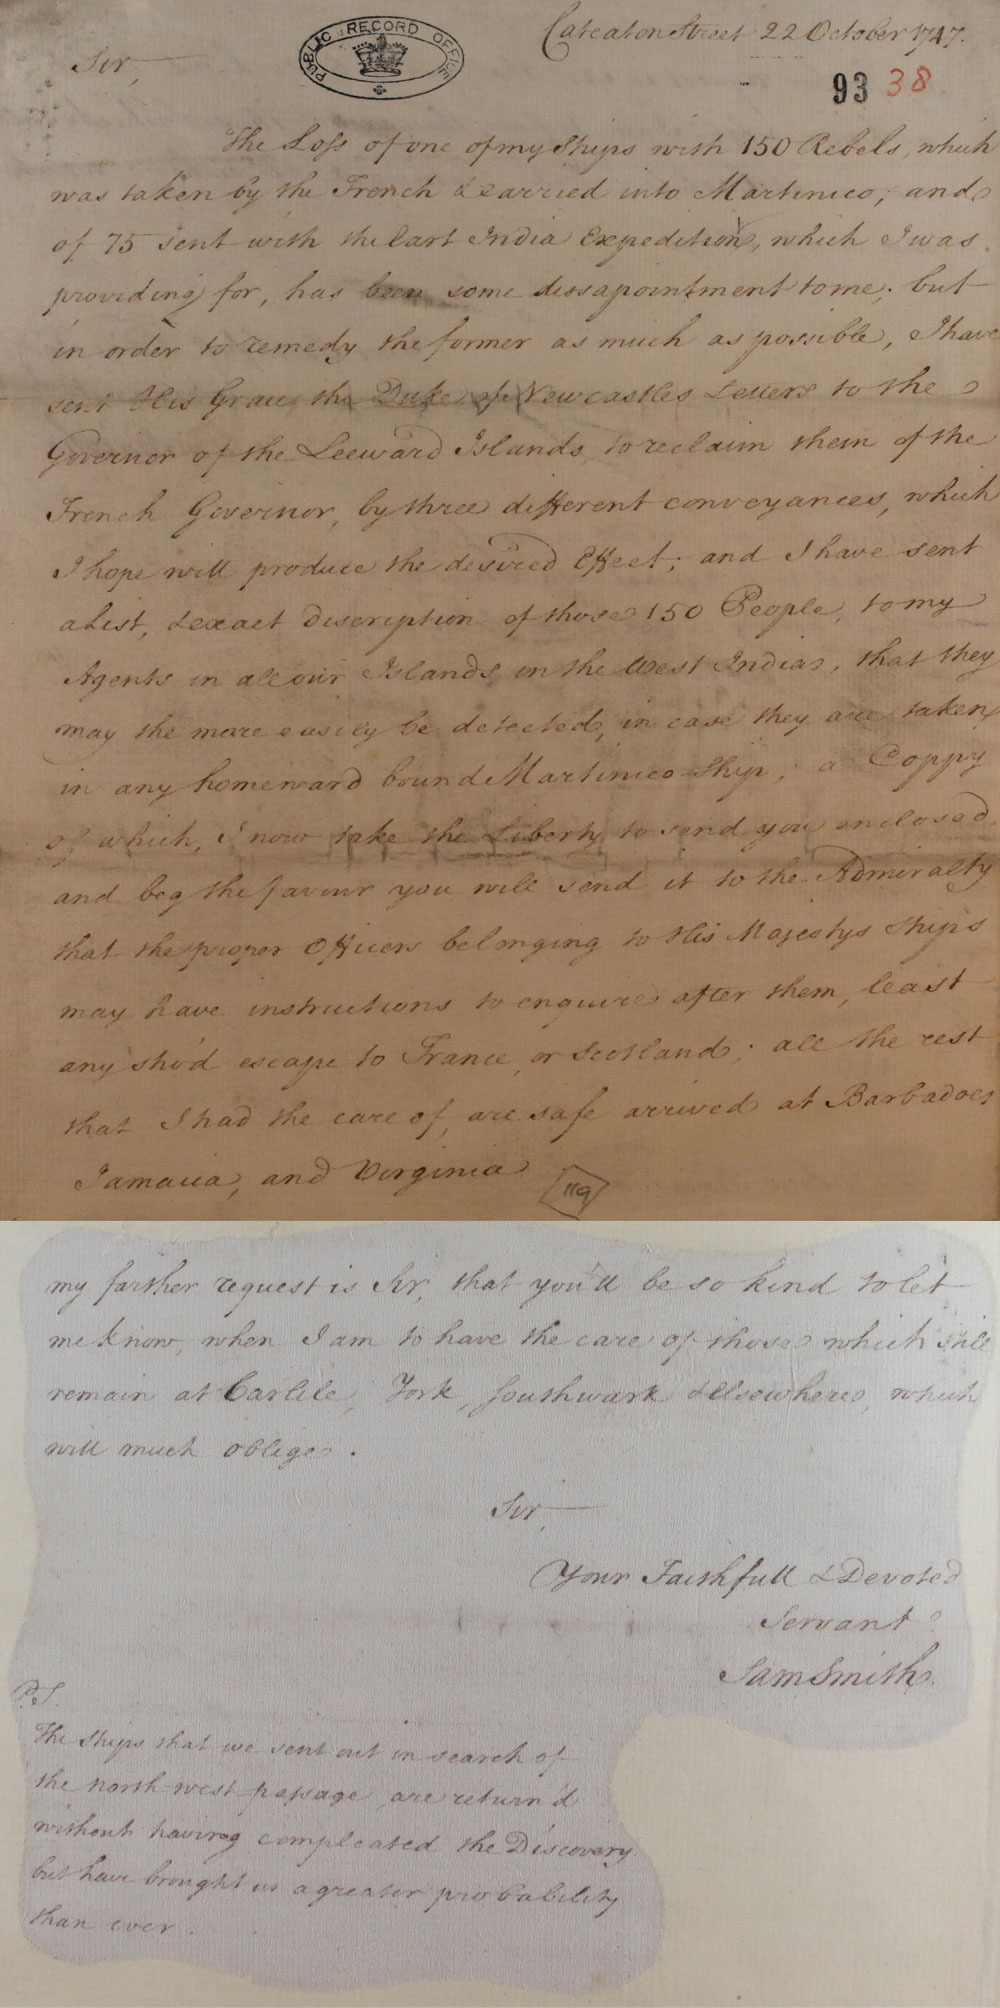 Cateaton Street 22 October 1747.
PUBLIC RECORD OFFICE
Sir,
93 38
The Loss of one of my Ships with 150 Rebels, which
was taken by the French & carried into Martinico; and
of 75 sent with the last India Expedition, which I was
providing for, has been some dissapointment to me; but
in order to remedy the former as much as possible, I have
sent His Grace the Duke of Newcastles Letters to the
Governor of the Leeward Islands, to reclaim them of the
French Governor, by three different conveyances, which
I hope will produce the desired Effect; and I have sent
a List, & exact Discription of those 150 People, to my
Agents in all our Islands in the West Indias, that they
may the more easily be detected, in case they are taken,
in any homeward bound Martinico Ship; a Coppy
of which, I now take the Liberty to send you enclosed
and beg the favour you will send it to the Admiralty
that the proper Officers belonging to His Majestys Ships
may have instructions to enquire after them, least
any sho'd escape to France, or Scotland; all the rest
that I had the care of, are safe arrived at Barbadoes
Jamaica, and Virginia
119
my farther request is Sir, that you'll be so kind to let
me know, when I am to have the care of those which still
remain at Carlile, York, Southwark & Elsewhere, which
will much oblige.
Sir,
Your Faithfull & Devoted
Servant
Sam Smith.
P.S.
The Ships that we sent out in search of
the north-west passage, are return'd
without having compleated the Discovery
but have brought us a greater probability
than ever.